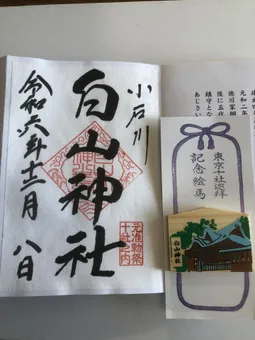 元和二年
後に五代
鎮守とな
あじさい
東京十社巡拝
記念絵馬
白山神社
小石川
白山神社
元准勅祭
十社之内
令和六年十二月
八日